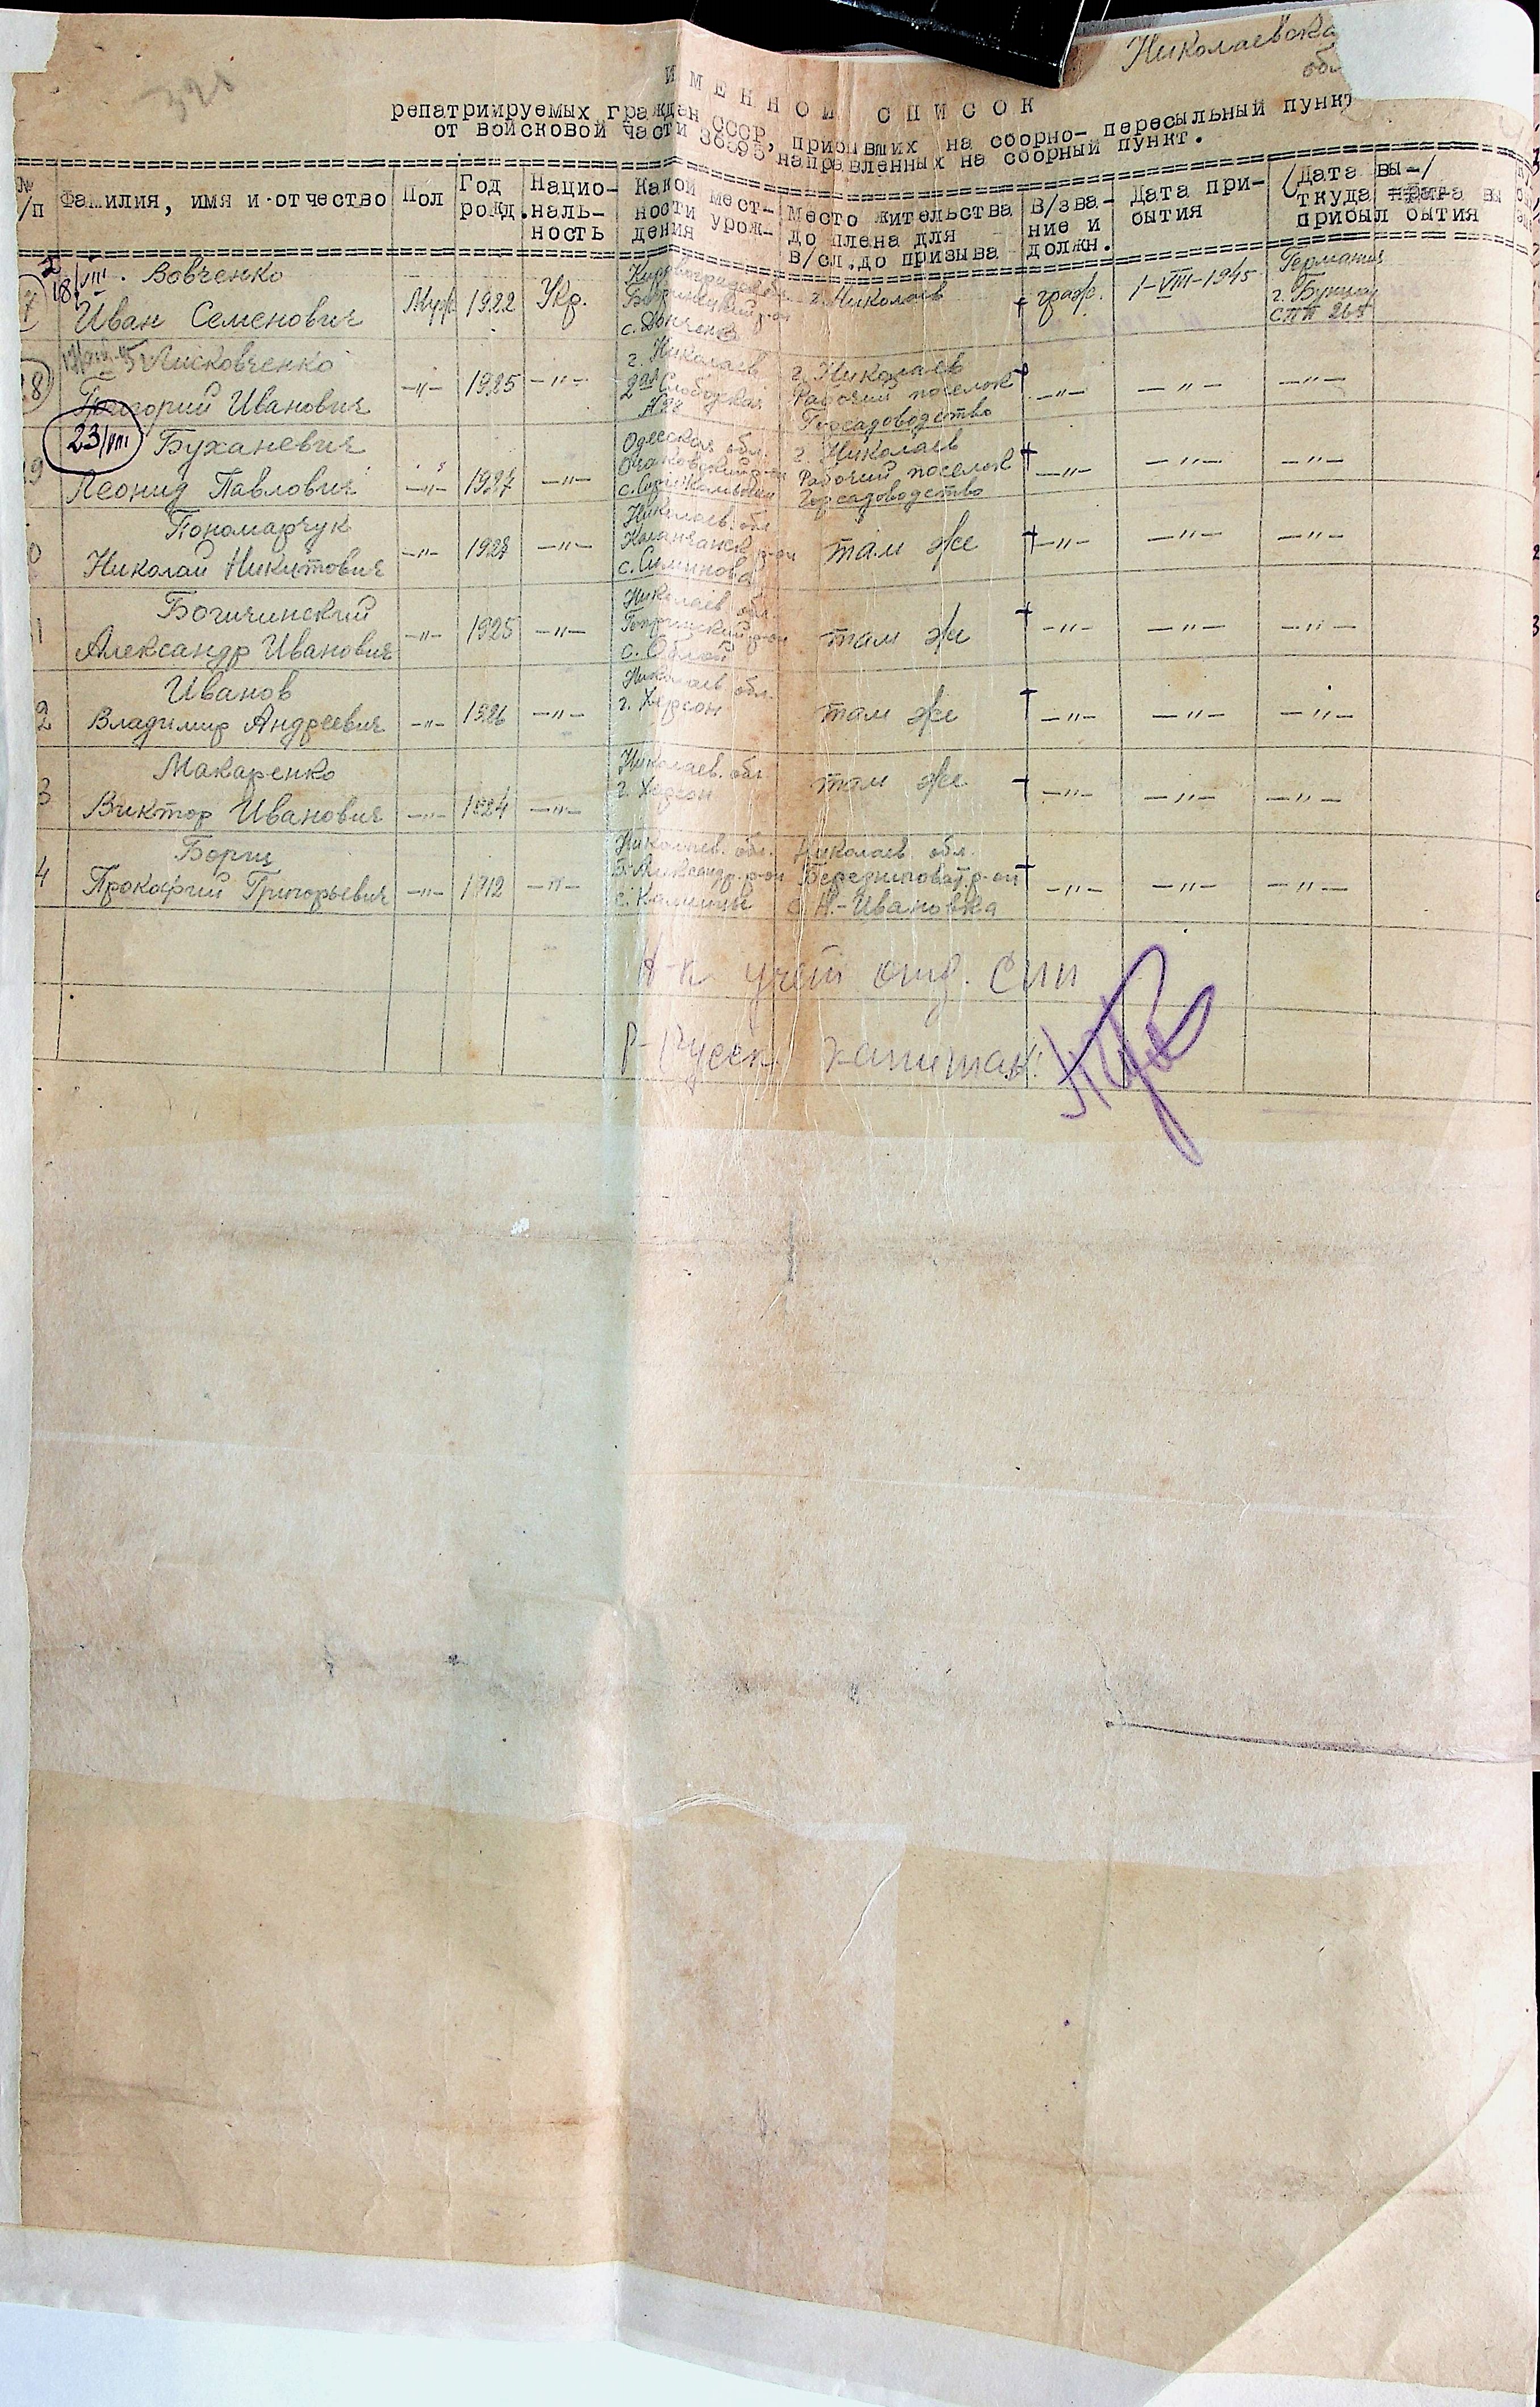 Николаевска
обл
321
ИМЕННОЙ СПИСОК
репатриируемых граждан СССР, прибывших на сборно- пересыльный пункт
от войсковой части 36595 направленных на сборный пункт.
№ /п
Фамилия, имя и отчество
Пол
Год рожд.
Нацио-наль-ность
Какой мест-ности урож-дения
Место жительства до плена для в/сл.до призыва
В/зва-ние и должн.
Дата при-бытия
ткуда прибыл
/Дата вы-/ бытия
7 18/VIII. Вовченко
Иван Семенович Муж. 1922 Укр. с. г. Николаев граж. 1-VIII-1945 Германия г. СПП 267
28 Лисковченко
Григорий Иванович -"- 1925 -"- г. Николаев 2ая Слободская г. Николаев Рабочий поселок Горсадоводство -"- -"- -"-
9 23/VIII Буханевич
Леонид Павлович -"- 1927 -"- Одесская обл. Очаковский р-он г. Николаев Рабочий поселок Горсадоводство -"- -"- -"-
0 Пономарчук
Николай Никитович -"- 1927 -"- Николаев. обл р-он там же -"- -"- -"-
1 Богичинский
Александр Иванович -"- 1925 -"- Николаев обл. р-он с. там же -"- -"- -"-
2 Иванов
Владимир Андреевич -"- 1926 -"- Николаев обл. г. Херсон там же -"- -"- -"-
3 Макаренко
Виктор Иванович -"- 1924 -"- Николаев. обл г. Херсон там же -"- -"- -"-
4 Борщ
Прокофий Григорьевич -"- 1912 -"- Николаев. обл. р-он Николаев обл. Березниповат р-он с. Н.-Ивановка -"- -"- -"-
Н-к учет отд. СПП
капитан: